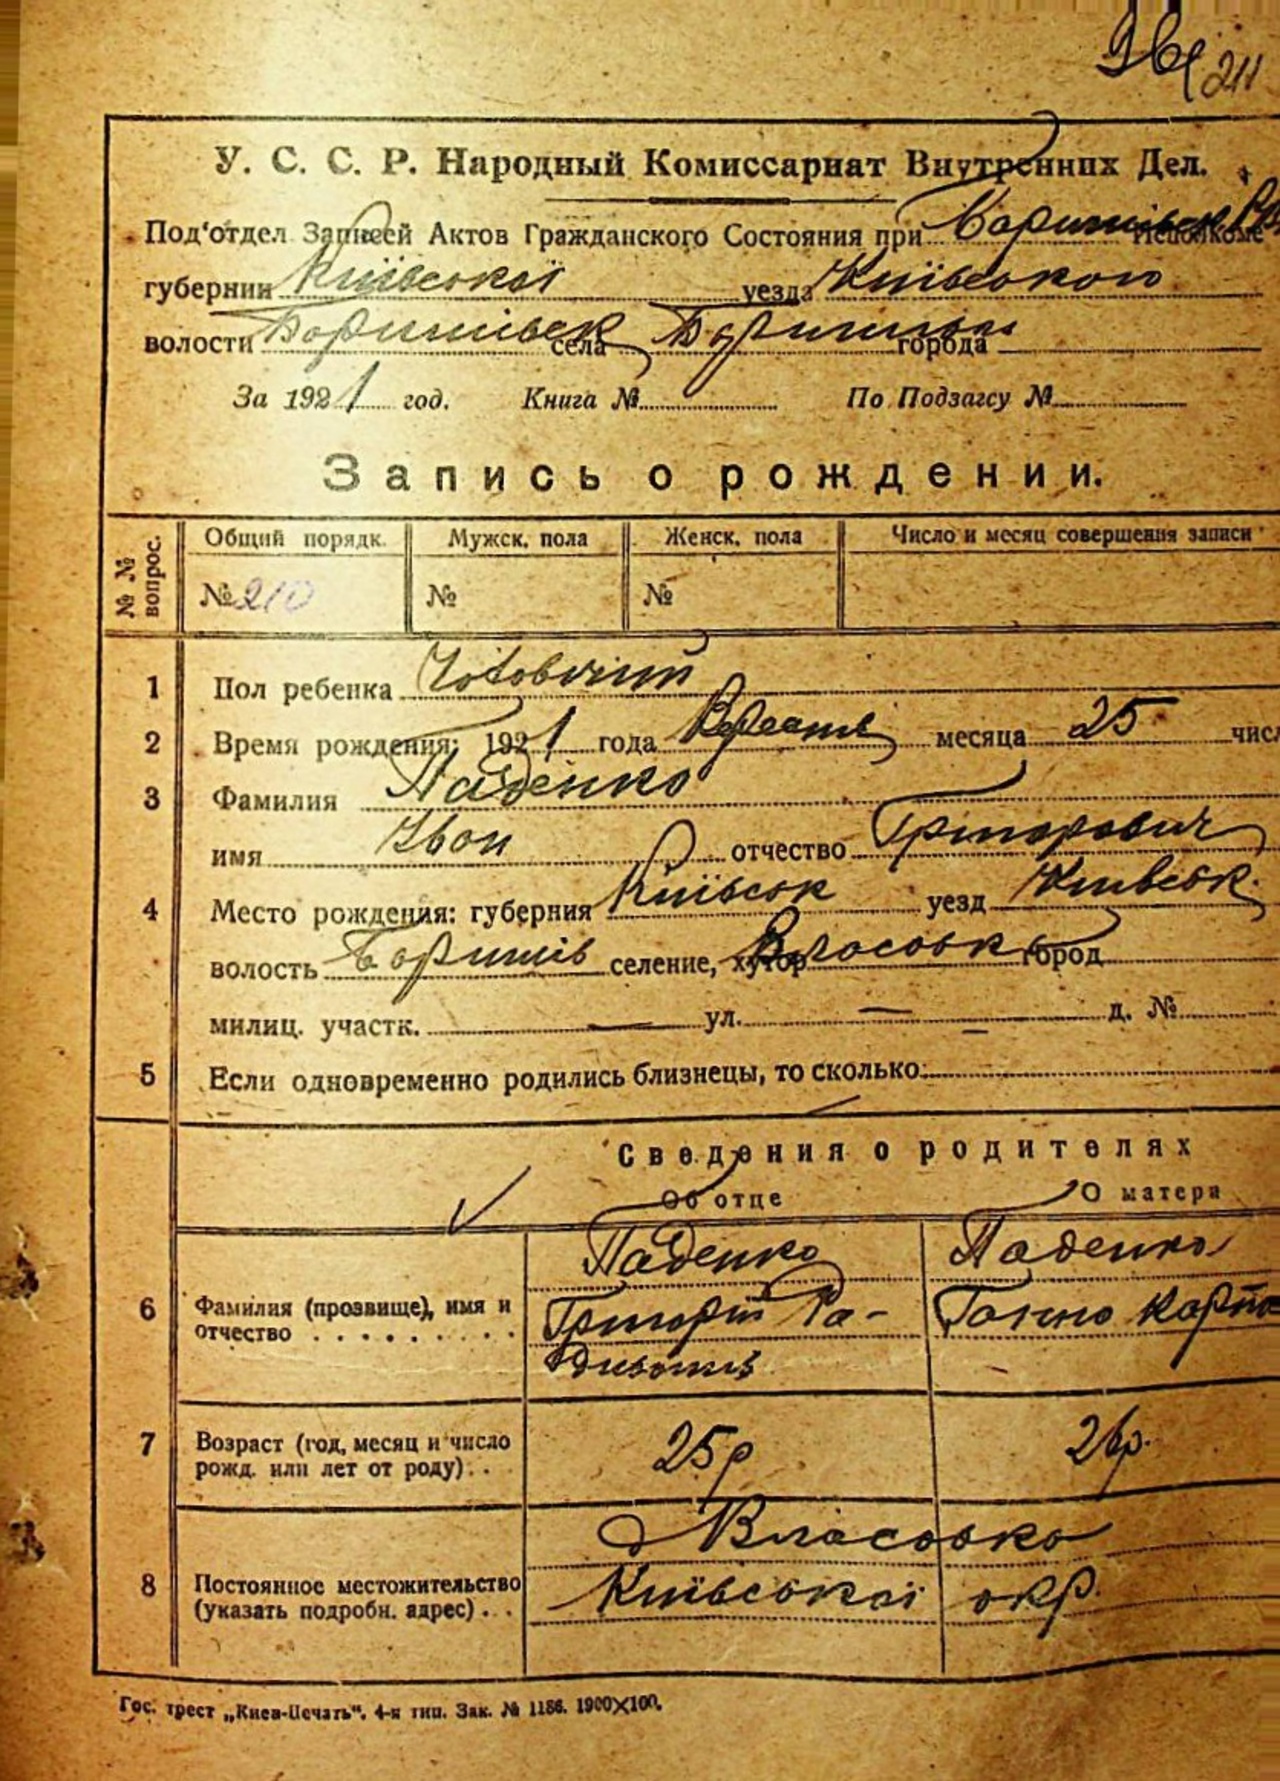 211
У. С. С. Р. Народный Комиссариат Внутренних Дел.
Под‘отдел Записей Актов Гражданского Состояния при Исполкоме
губернии Київської уезда Київського
волости Баришівськ села города
За 1921 год. Книга № По Подзагсу №
Запись о рождении.
№ № вопрос. Общий порядк. Мужск. пола Женск. пола Число и месяц совершения записи
№ 210 № №
1 Пол ребенка Чоловічий
2 Время рождения: 1921 года месяца 25 числ
3 Фамилия Паденко
имя Іван отчество Григорович
4 Место рождения: губерния Київськ уезд Київськ.
волость Баришів селение, хутор Власовк город
милиц. участк. — ул. — д. №
5 Если одновременно родились близнецы, то сколько: —
Сведения о родителях
Об отце О матери
Паденко Паденко
6 Фамилия (прозвище), имя и отчество . . . . . . . . . Григорій Ра- Ганна Карпо
дивонів
7 Возраст (год, месяц и число рожд. или лет от роду) . . 25 р 26 р.
Власовка
8 Постоянное местожительство (указать подробн. адрес) . . . Київської окр.
Гос. трест „Киев-Печать“. 4-я тип. Зак. № 1186. 1900×100.